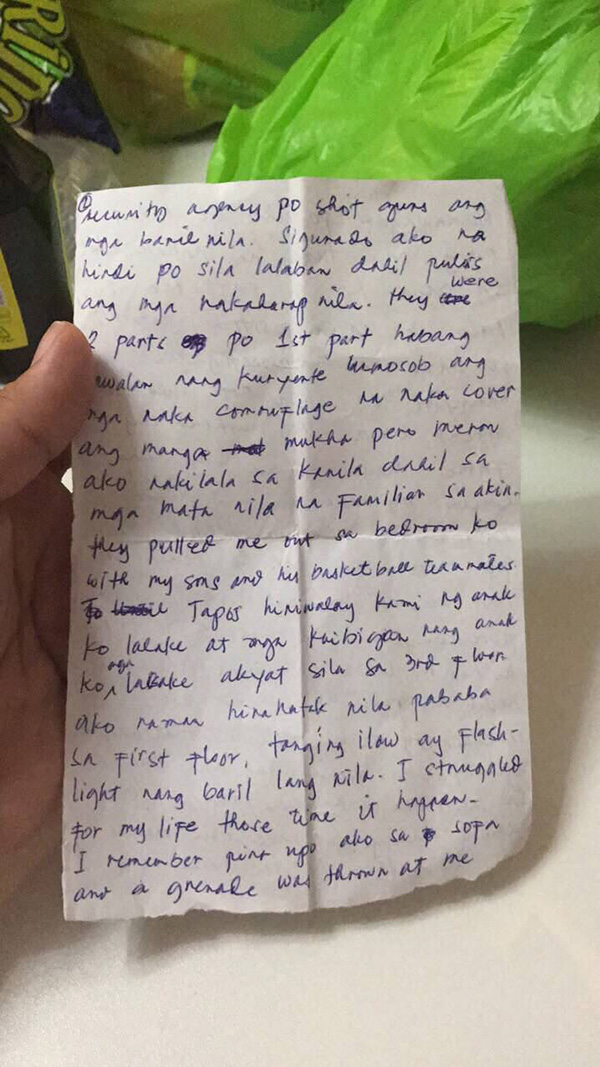 RINO
①
security agency po shot guns ang
mga baril nila. Sigurado ako na
hindi po sila lalaban dahil pulis
ang mga nakaharap nila. they were
2 parts po 1st part habang
nawalan nang kuryente lumosob ang
mga naka commuflage na naka cover
ang manga mukha pero meron
ako nakilala sa kanila dahil sa
mga mata nila na Familiar sa akin.
they pulled me out sa bedroom ko
with my sons and his basketball teammates.
Tapos hiniwalay kami ng anak
ko lalake at mga kaibigan nang anak
ko mga lalake akyat sila sa 3rd floor
ako naman hinahatak nila pababa
sa First Floor, tanging ilaw ay Flash-
light nang baril lang nila. I struggled
for my life those time it happen-
I remember pina upo ako sa sofa
and a grenade was thrown at me